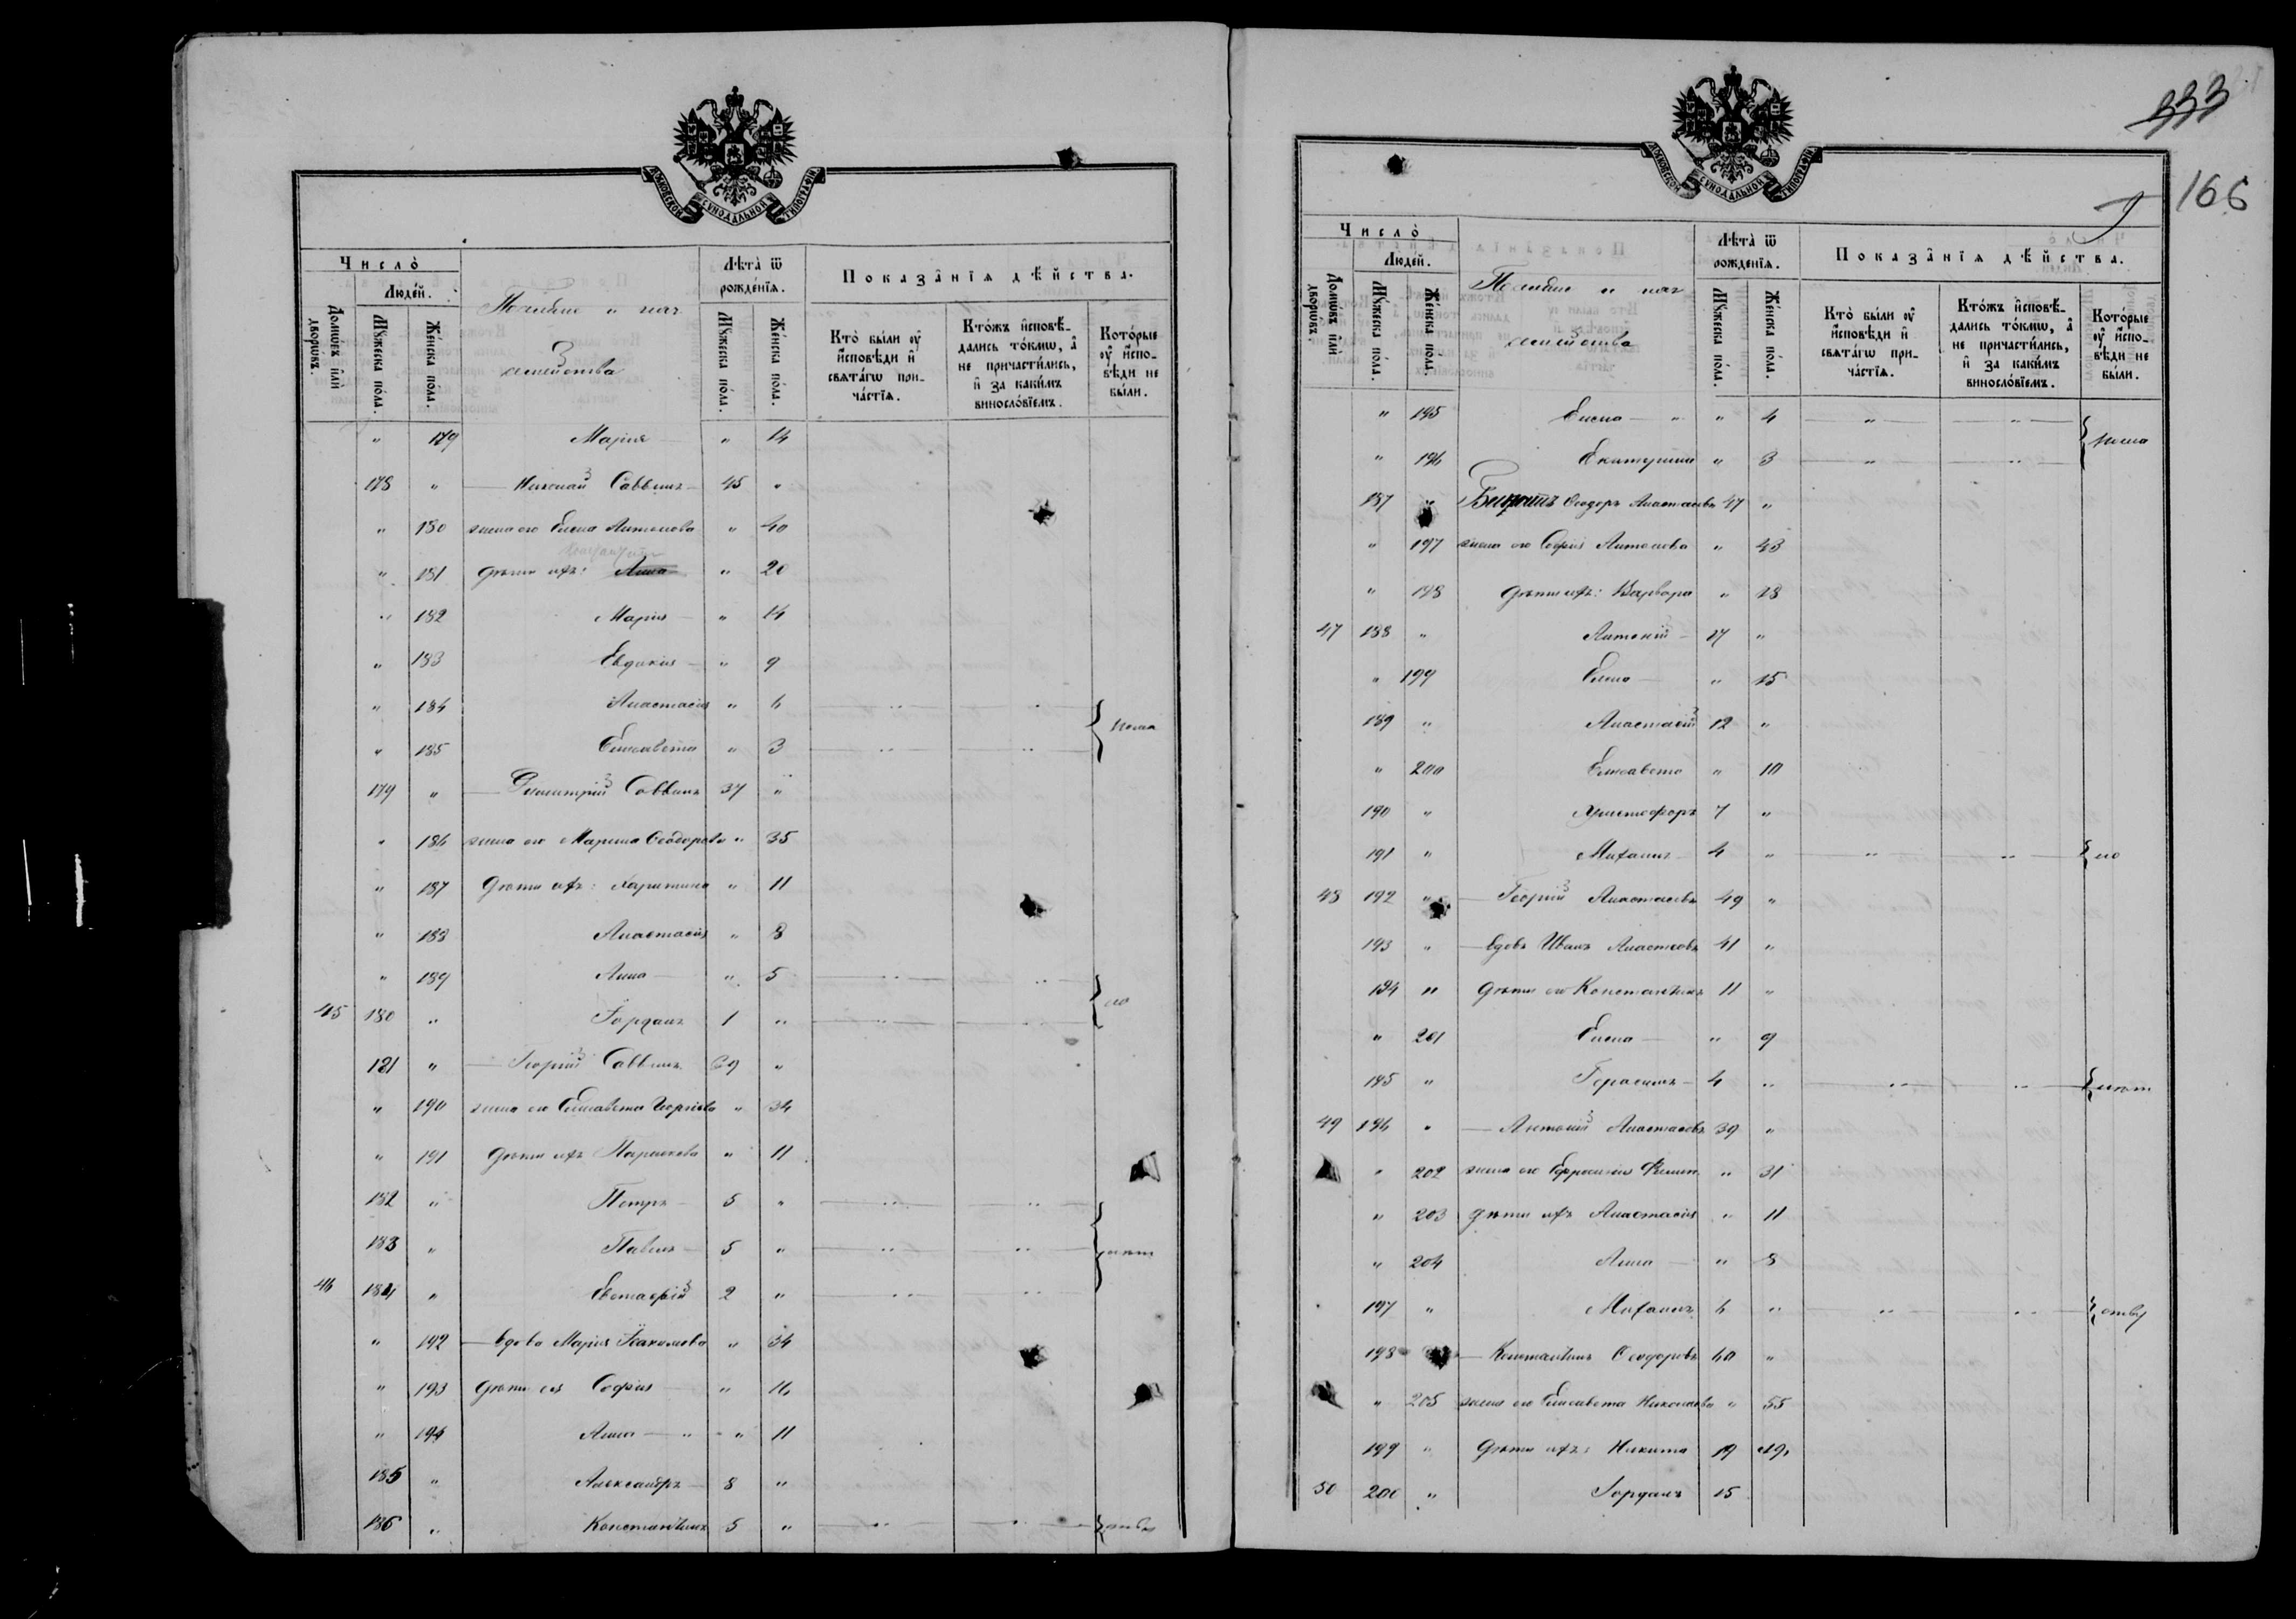 МОСКОВСКОЙ СѴНОДАЛЬНОЙ ТИПОГРАФІИ.
Число̀
Людей.
Домѡвъ и҆лѝ дворѡвъ.
Мꙋжеска пола.
Женска пола.
семейства
Лѣта̀ ѿ рожденїѧ.
Мꙋжеска пола.
Женска пола.
Показа̂нїѧ дѣйства.
Кто̀ были оу҆ и҆сповѣди и҆ свѧтагѡ причастїѧ.
Ктожъ и҆сповѣдались токмѡ, а҆ не причастились, и҆ за какимъ винословїемъ.
Которые оу҆ и҆сповѣди не были.
" 179 Марія " 14
178 " Николай Саввинъ 45 "
" 180 жена его Елена Антонова " 40
" 181 дѣти ихъ: Анна " 20
" 182 Марія " 14
" 183 Евдокія " 9
" 184 Анастасія " 6
" 185 Елисавета " 3
179 " Димитрій Саввинъ 37 "
" 186 жена его Марина Ѳеодорова " 35
" 187 Дѣти ихъ: Харитина " 11
" 188 Анастасія " 8
" 189 Анна " 5
45 180 " Іорданъ 1 " по
181 " Георгій Саввинъ 39 "
" 190 жена его Елисавета Георгіева " 34
" 191 дѣти ихъ Параскева " 11
182 " Петръ 5 "
183 " Павелъ 5 "
46 184 " Евстафій 2 "
" 192 вдова Марія " 34
" 193 дѣти ея София " 16
" 194 Анна " 11
185 " Александръ 8 "
186 " Константинъ 5 "
333
166
МОСКОВСКОЙ СѴНОДАЛЬНОЙ ТИПОГРАФІИ.
Число̀
Людей.
Домѡвъ и҆лѝ дворѡвъ.
Мꙋжеска пола.
Женска пола.
семейства
Лѣта̀ ѿ рожденїѧ.
Мꙋжеска пола.
Женска пола.
Показа̂нїѧ дѣйства.
Кто̀ были оу҆ и҆сповѣди и҆ свѧтагѡ причастїѧ.
Ктожъ и҆сповѣдались токмѡ, а҆ не причастились, и҆ за какимъ винословїемъ.
Которые оу҆ и҆сповѣди не были.
" 195 Елена " 4
" 196 Екатерина " 3
187 " Ѳеодоръ Анастасовъ 47 "
" 197 жена его Софія Антонова " 43
" 198 дѣти ихъ: Варвара " 18
47 188 " Антоній 17 "
" 199 Елена " 15
189 " Анастасій 12 "
" 200 Елисавета " 10
190 " Христофоръ 7 "
191 " Михаилъ 4 " по
48 192 " Георгій Анастасовъ 49 "
193 " вдовъ Иванъ Анастасовъ 41 "
194 " дѣти его Константинъ 11 "
" 201 Елена " 9
195 " Герасимъ 4 "
49 196 " Антоній Анастасовъ 39 "
" 202 жена его Ефросинія Филип. " 31
" 203 дѣти ихъ Анастасія " 11
" 204 Анна " 8
197 " Михаилъ 6 "
198 Константинъ Ѳеодоровъ 60 "
" 205 жена его Елисавета Николаева " 55
199 " дѣти ихъ: Никита 19
50 200 " Іорданъ 15